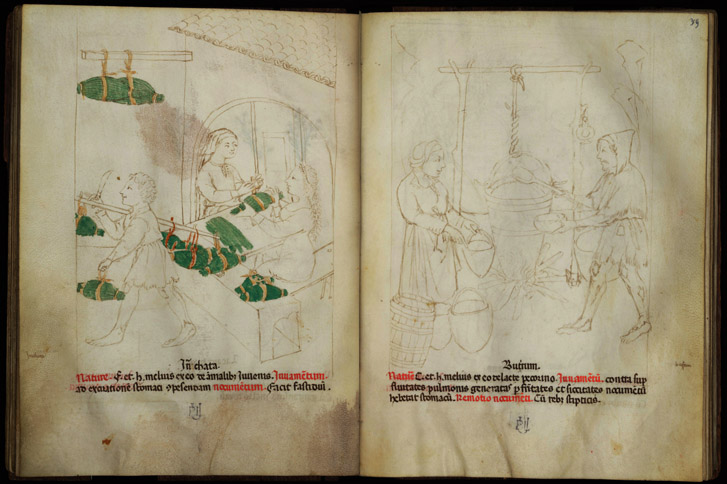 Iuchata.
Nature. F. et. h. melius ex eo de animalibus iuvenis. Iuvamentum.
ad excoriationē stomaci 9pescendam nocumentum. Facit fastidiū.
39
Butirum.
Natur̄e C. et. h. melius ex eo de lacte pecorino. Iuvamētū. contra sup
fluitates pulmonis generatas p frītates et siccitates nocumētū
hebetat stomacū. Remotio nocumēti. Cū rebꝫ stipticis.